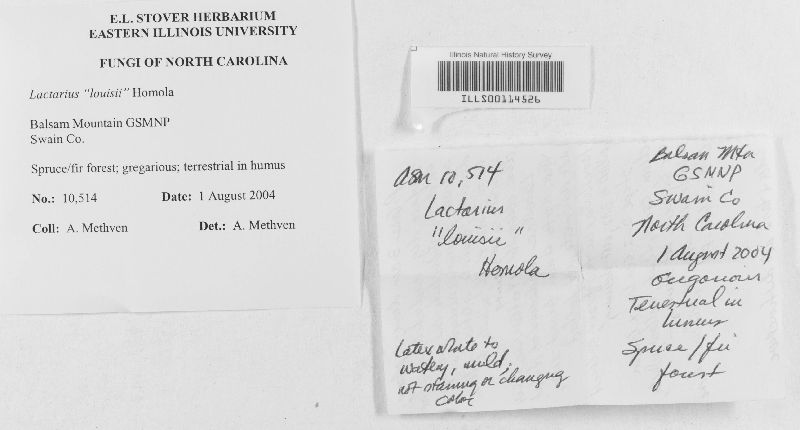 E.L. STOVER HERBARIUM
EASTERN ILLINOIS UNIVERSITY
FUNGI OF NORTH CAROLINA
Lactarius "louisii" Homola
Balsam Mountain GSMNP
Swain Co.
Spruce/fir forest; gregarious; terrestrial in humus
No.: 10,514 Date: 1 August 2004
Coll: A. Methven Det.: A. Methven
Illinois Natural History Survey
ILLS00114526
ASM 10,514
Lactarius
"louisii"
Homola
Latex white to
watery, mild,
not staining or changing
color
Balsam Mtn
GSMNP
Swain Co
North Carolina
1 August 2004
Terrestrial in
humus
Spruce/fir
forest